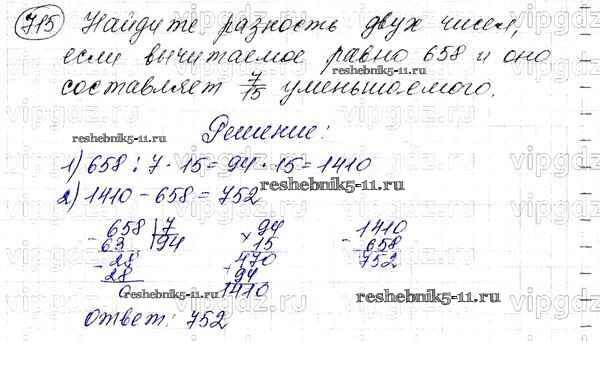 715 Найдите разность двух чисел,
если вычитаемое равно 658 и оно
reshebnik5-11.ru
составляет 7/15 уменьшаемого.
reshebnik5-11.ru
Решение:
1) 658 : 7 · 15 = 94 · 15 = 1410
reshebnik5-11.ru
2) 1410 - 658 = 752
658 | 7 94 1410
- 63 | 94 × 15 - 658
- 28 470 752
28 + 94
0 1410
reshebnik5-11.ru
reshebnik5-11.ru
ответ: 752
vipgdz.ru
vipgdz.ru
vipgdz.ru